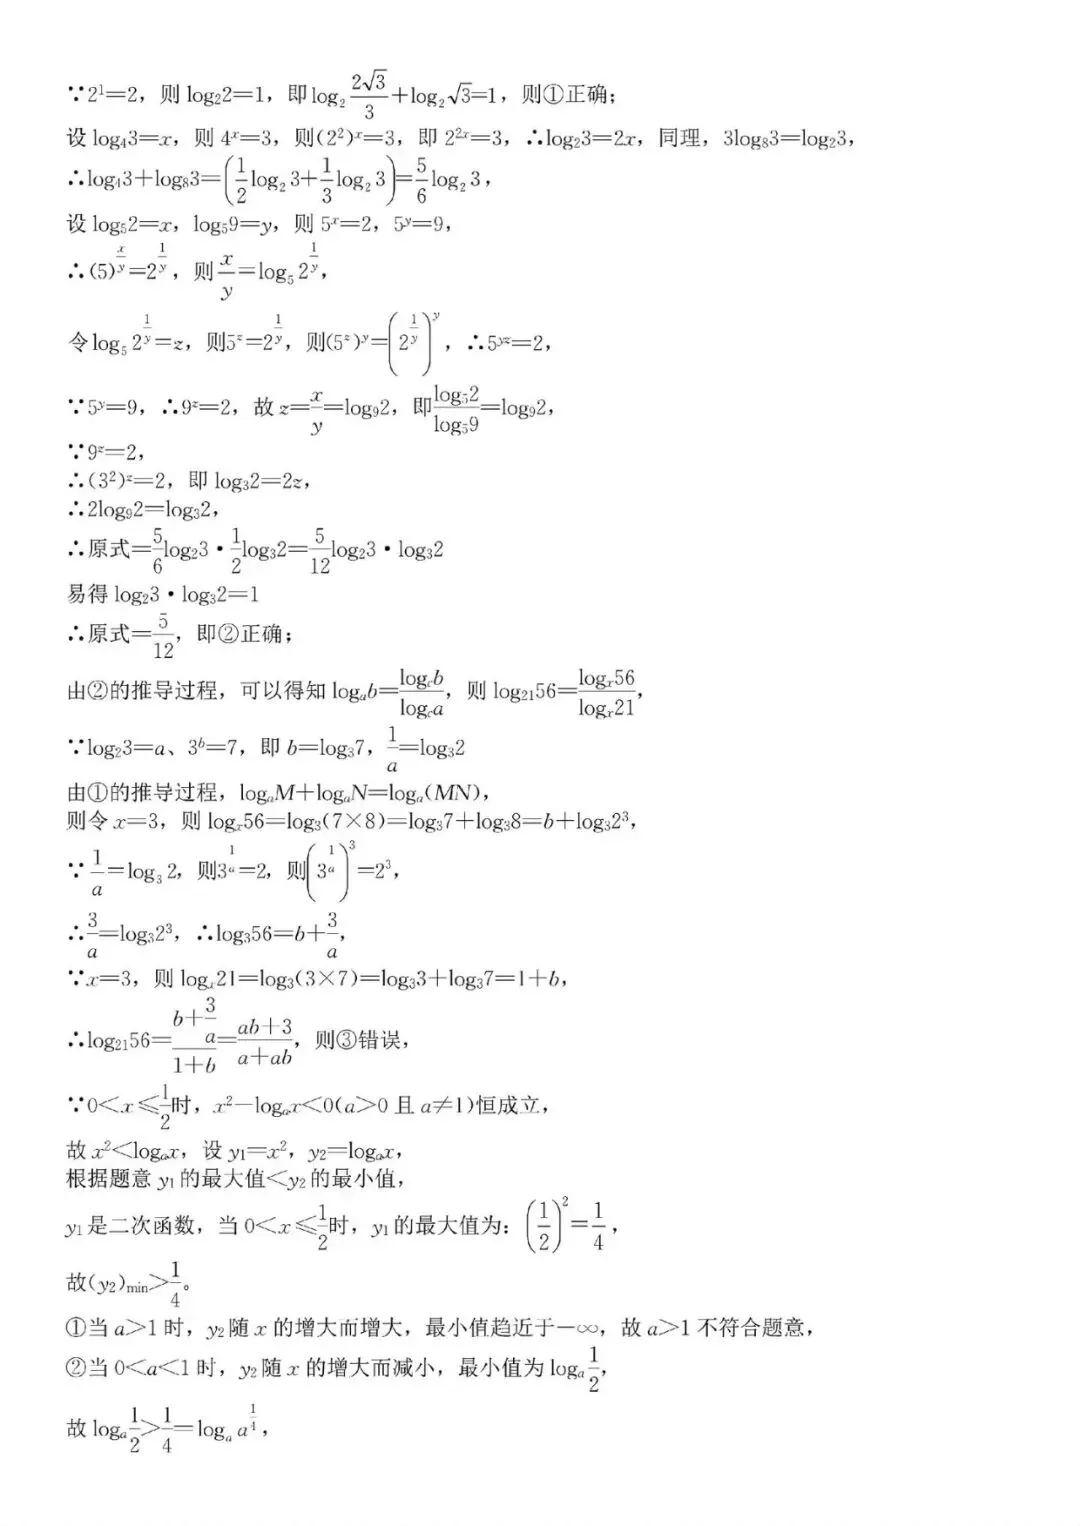 ∵2¹=2，则 log₂2=1，即 log₂ 2√3/3+log₂ √3=1，则①正确；
设 log₄3=x，则 4ˣ=3，则(2²)ˣ=3，即 2²ˣ=3，∴log₂3=2x，同理，3log₈3=log₂3，
∴log₄3+log₈3=(1/2 log₂ 3+1/3 log₂ 3)=5/6 log₂ 3，
设 log₅2=x，log₅9=y，则 5ˣ=2，5ʸ=9，
∴(5)^(x/y)=2^(1/y)，则 x/y=log₅ 2^(1/y)，
令 log₅ 2^(1/y)=z，则5ᶻ=2^(1/y)，则(5ᶻ)ʸ=(2^(1/y))^y，∴5ʸᶻ=2，
∵5ʸ=9，∴9ᶻ=2，故 z=x/y=log₉2，即log₅2/log₅9=log₉2，
∵9ᶻ=2，
∴(3²)ᶻ=2，即 log₃2=2z，
∴2log₉2=log₃2，
∴原式=5/6 log₂3·1/2 log₃2=5/12 log₂3·log₃2
易得 log₂3·log₃2=1
∴原式=5/12，即②正确；
由②的推导过程，可以得知 logₐb=log_c b/log_c a，则 log₂₁56=logₓ56/logₓ21，
∵log₂3=a、3ᵇ=7，即 b=log₃7，1/a=log₃2
由①的推导过程，logₐM+logₐN=logₐ(MN)，
则令 x=3，则 logₓ56=log₃(7×8)=log₃7+log₃8=b+log₃2³，
∵1/a=log₃ 2，则3^(1/a)=2，则(3^(1/a))³=2³，
∴3/a=log₃2³，∴log₃56=b+3/a，
∵x=3，则 logₓ21=log₃(3×7)=log₃3+log₃7=1+b，
∴log₂₁56=(b+3/a)/(1+b)=(ab+3)/(a+ab)，则③错误，
∵0<x≤1/2时，x²−logₐx<0(a>0 且 a≠1)恒成立，
故 x²<logₐx，设 y₁=x²，y₂=logₐx，
根据题意 y₁的最大值<y₂的最小值，
y₁是二次函数，当 0<x≤1/2时，y₁的最大值为：(1/2)²=1/4，
故(y₂)min>1/4。
①当 a>1 时，y₂随 x 的增大而增大，最小值趋近于−∞，故 a>1 不符合题意，
②当 0<a<1 时，y₂随 x 的增大而减小，最小值为 logₐ1/2，
故 logₐ1/2>1/4=logₐ a^(1/4)，